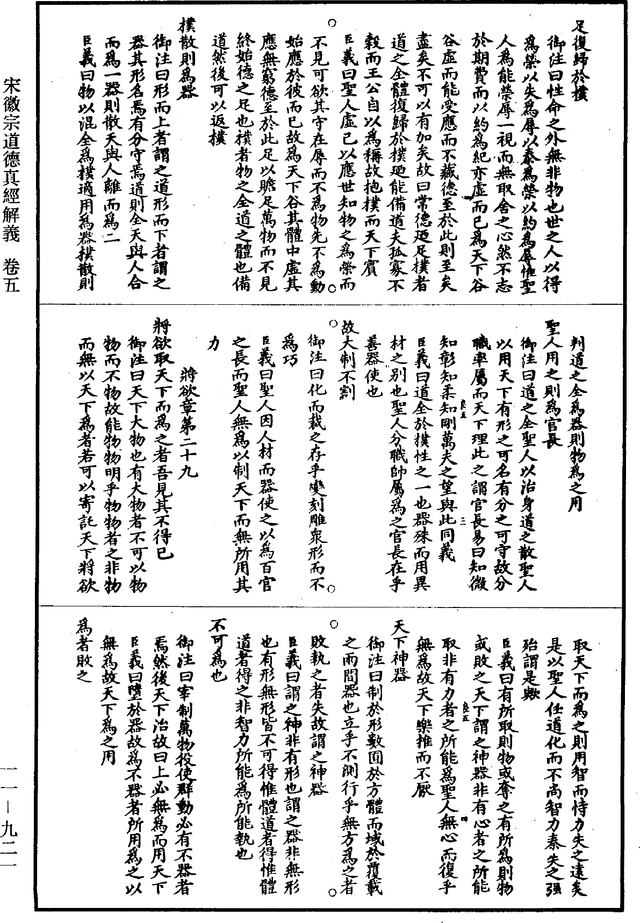 足復歸於樸
御注曰性命之外無非物也世之人以得
爲榮以失爲辱以泰爲榮以約爲辱惟聖
人爲能榮辱一視而無取舍之心然不志
於期費而以約爲紀亦虛而已爲天下谷
谷虛而能受應而不藏德至於此則至矣
盡矣不可以有加矣故曰常德迺足樸者
道之全體復歸於樸迺能備道夫孤寡不
穀而王公自以爲稱故抱樸而天下賓
臣義曰聖人虛己以應世知物之爲榮而
不見可欲其守在辱而不爲物先不爲動
始應於彼而已故爲天下谷其體中虛其
應無窮德至於此足以贍足萬物而不見
終始德之足也樸者物之全道之體也備
道然後可以返樸
樸散則爲器
御注曰形而上者謂之道形而下者謂之
器其形名焉有分守焉道則全天與人合
而爲一器則散天與人離而爲二
臣義曰物以混全爲樸適用爲器樸散則
宋徽宗道德真經解義 卷五
判道之全爲器則物爲之用
聖人用之則爲官長
御注曰道之全聖人以治身道之散聖人
以用天下有形之可名有分之可守故分
職率屬而天下理此之謂官長易曰知微
知彰知柔知剛萬夫之望與此同義
臣義曰道全於樸性之一也器殊而用異
材之別也聖人分職帥屬爲之官長在乎
善器使也
故大制不割
御注曰化而裁之存乎變刻雕衆形而不
爲巧
臣義曰聖人因人材而器使之以爲百官
之長而聖人無爲以制天下而無所用其
力
將欲章第二十九
將欲取天下而爲之者吾見其不得已
御注曰天下大物也有大物者不可以物
物而不物故能物物明乎物物者之非物
而無以天下爲者若可以寄託天下將欲
取天下而爲之則用智而恃力失之遠矣
是以聖人任道化而不尚智力秦失之強
殆謂是歟
臣義曰有所取則物或奪之有所爲則物
或敗之天下謂之神器非有心者之所能
取非有力者之所能爲聖人無心而復乎
無爲故天下樂推而不厭
天下神器
御注曰制於形數囿於方體而域於覆載
之兩間器也立乎不測行乎無方爲之者
敗執之者失故謂之神器
臣義曰謂之神非有形也謂之器非無形
也有形無形皆不可得惟體道者得惟體
道者得之非智力所能爲所能執也
不可爲也
御注曰宰制萬物役使群動必有不器者
焉然後天下治故曰上必無爲而用天下
臣義曰墮於器故爲不器者所用爲之以
無爲故天下爲之用
爲者敗之
一一－九二一